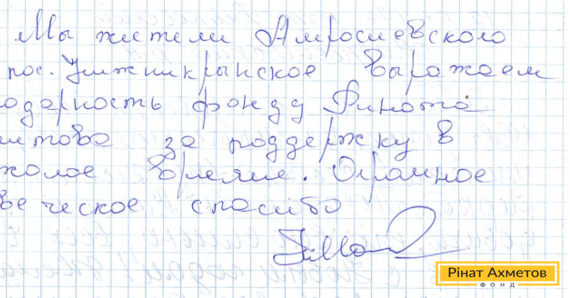 Мы жители Амросиевского
пос. Нижникрынское выражаем
одарность фонду Рината
метова за поддержку в
желое время. Огромное
веческое спасибо
Рінат Ахметов
ФОНД